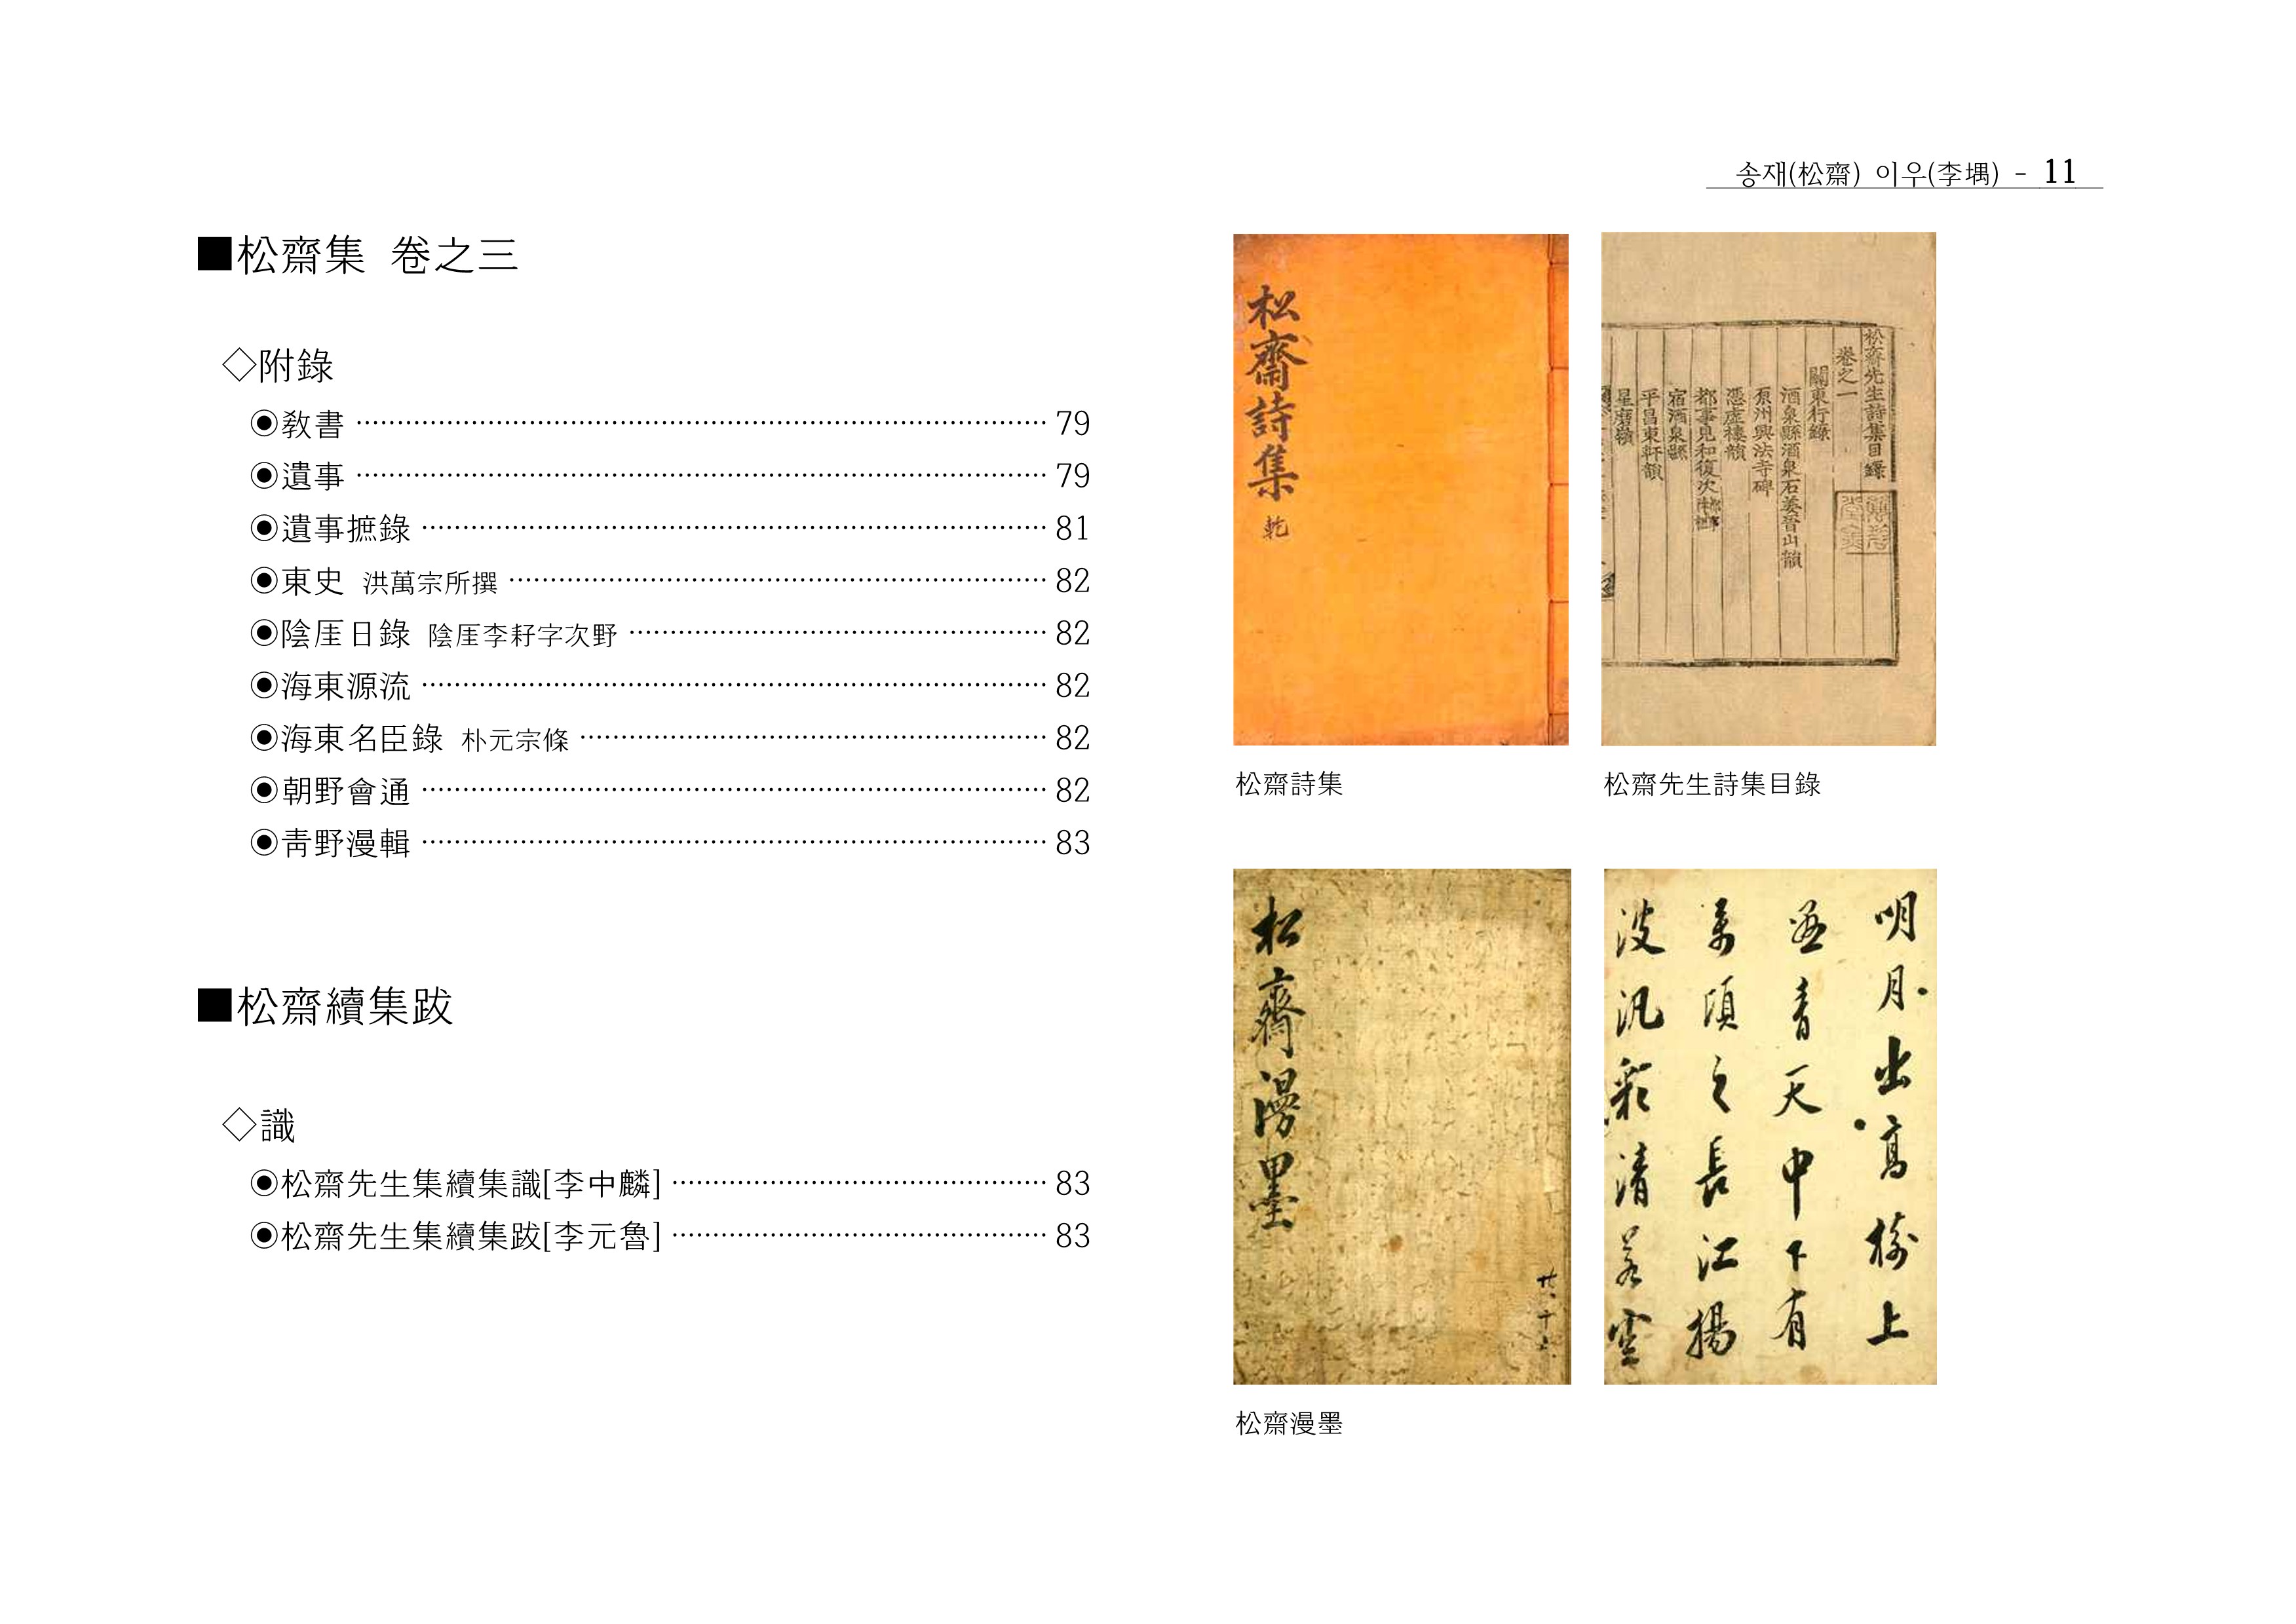 송재(松齋) 이우(李堣) - 11
■松齋集 卷之三
◇附錄
◉敎書 ⋯⋯⋯⋯ 79
◉遺事 ⋯⋯⋯⋯ 79
◉遺事摭錄 ⋯⋯⋯⋯ 81
◉東史 洪萬宗所撰 ⋯⋯⋯⋯ 82
◉陰厓日錄 陰厓李耔字次野 ⋯⋯⋯⋯ 82
◉海東源流 ⋯⋯⋯⋯ 82
◉海東名臣錄 朴元宗條 ⋯⋯⋯⋯ 82
◉朝野會通 ⋯⋯⋯⋯ 82
◉靑野漫輯 ⋯⋯⋯⋯ 83
■松齋續集跋
◇識
◉松齋先生集續集識[李中麟] ⋯⋯⋯⋯ 83
◉松齋先生集續集跋[李元魯] ⋯⋯⋯⋯ 83
松齋詩集 乾
松齋詩集
松齋先生詩集目錄
卷之一
關東行錄
酒泉縣酒泉石姜晉山韻
原州興法寺碑
憑虛樓韻
都事見和復次
宿酒泉縣
平昌東軒韻
星磨嶺
松齋先生詩集目錄
松齋漫墨
松齋漫墨
明月出高樹上
靑天中下有
萬頃之長江揚
波汎彩淸若空